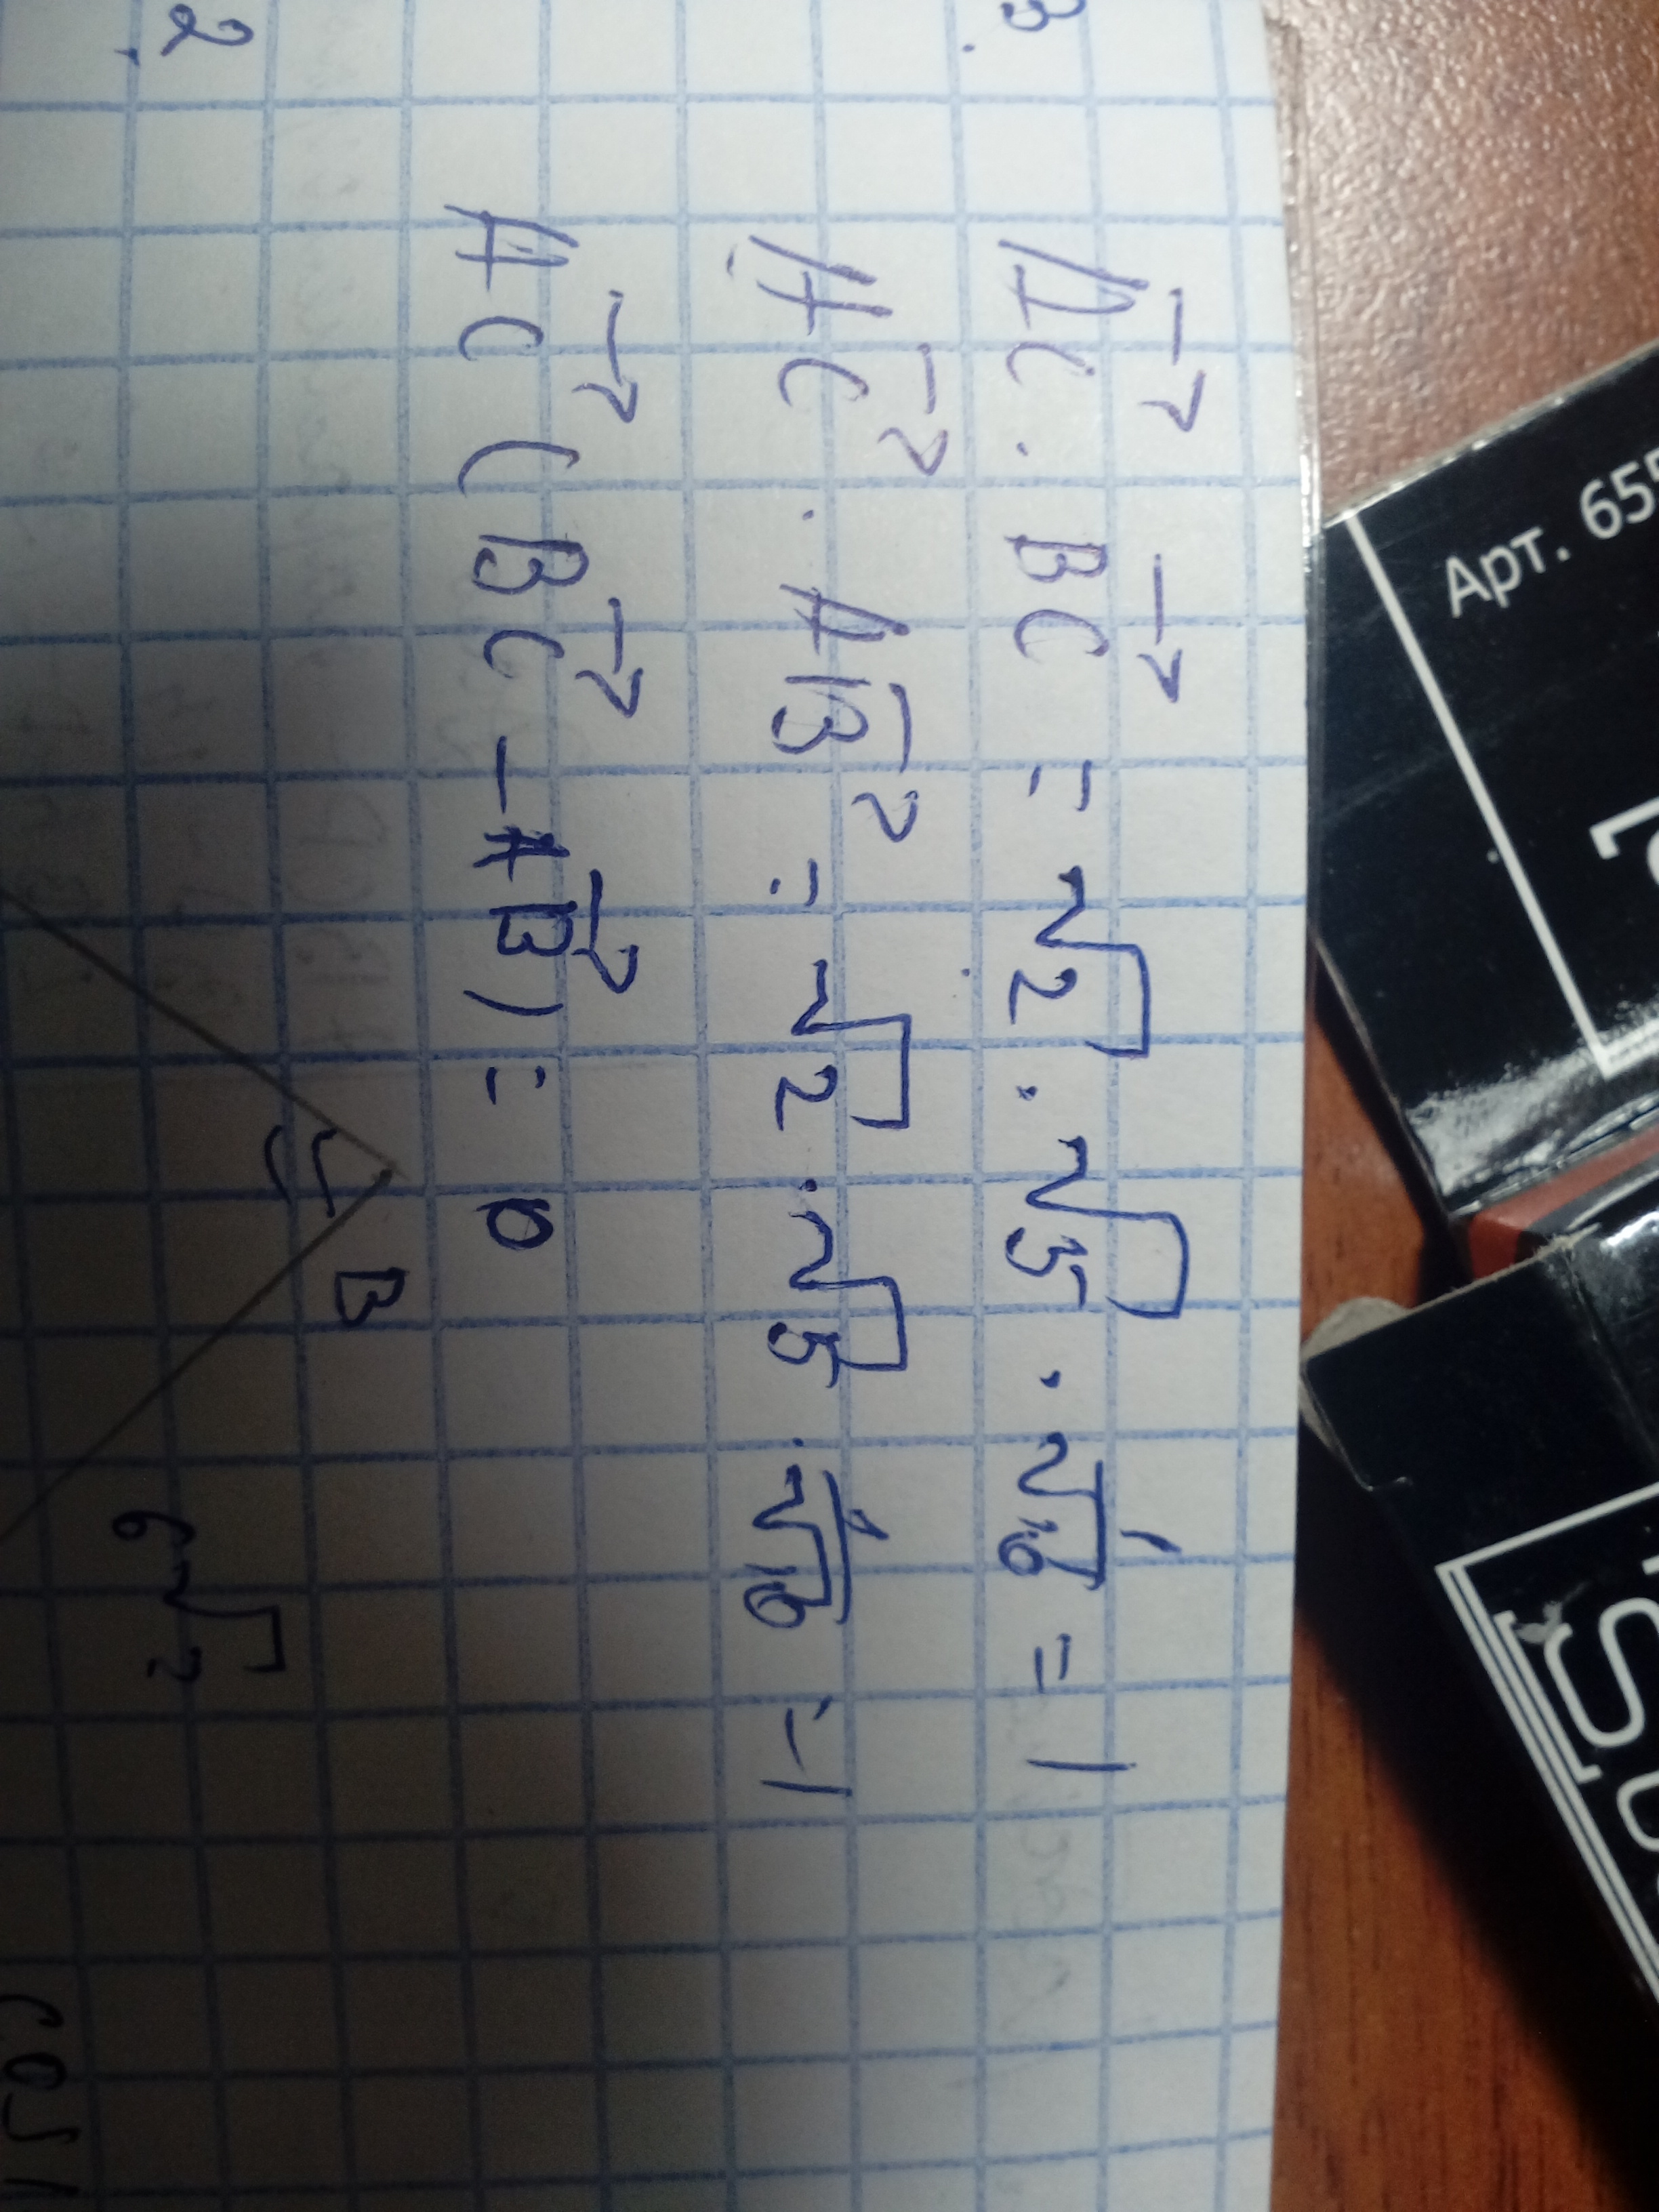 3.
AC→ · BC→ = √2 · √5 · 1/√10 = 1
AC→ · AB→ = √2 · √5 · 1/√10 = 1
AC→ (BC→ - AB→) = 0
2.
B
6√2
Арт. 655